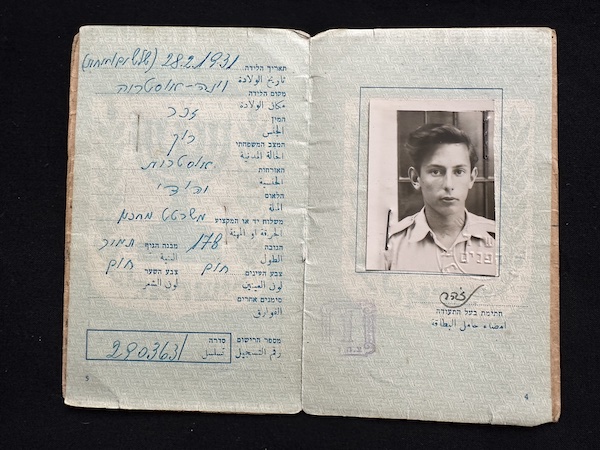 תאריך הלידה. 28.2.1931
تاريخ الولادة
מקום הלידה וינה-אוסטריה
مكان الولادة
המין זכר
الجنس
המצב המשפחתי רוק
الحالة المدنية
האזרחות אוסטרית
الجنسية
הלאום יהודי
الملة
משלוח יד או המקצוע
الحرفة او المهنة
הגובה 178 מבנה הגוף תמיר
الطول البنية
צבע העינים חום צבע השער חום
لون العينين لون الشعر
סימנים אחרים
الفوارق
מספר הרישום סדרה
رقم التسجيل تسلسل
290363/
5
חתימת בעל התעודה
امضاء حامل البطاقة
4